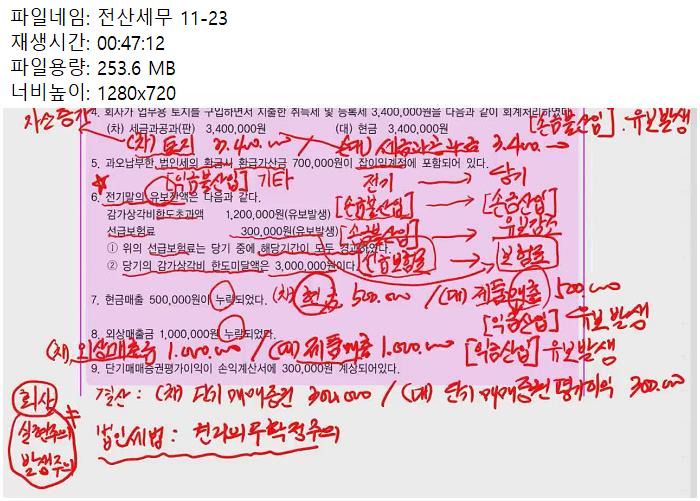 파일네임: 전산세무 11-23
재생시간: 00:47:12
파일용량: 253.6 MB
너비높이: 1280x720
4. 회사가 업무용 토지를 구입하면서 지출한 취득세 및 등록세 3,400,000원을 다음과 같이 회계처리하였다.
자산증가
(차) 세금과공과(판) 3,400,000원 (대) 현금 3,400,000원
[손금불산입] 유보발생
(차) 토지 3.400.000 / (대) 세금과공과 3.400
5. 과오납부한 법인세의 환급시 환급가산금 700,000원이 잡이익계정에 포함되어 있다.
[익금불산입] 기타 전기 → 당기
6. 전기말의 유보잔액은 다음과 같다.
감가상각비한도초과액 1,200,000원(유보발생) [손금불산입] → [손금산입]
선급보험료 300,000원(유보발생) [손금불산입] → 유보감소
① 위의 선급보험료는 당기 중에 해당기간이 모두 경과하였다.
선급보험료 → 보험료
② 당기의 감가상각비 한도미달액은 3,000,000원이다.
7. 현금매출 500,000원이 누락되었다. (차) 현금 500.000 / (대) 제품매출 500.000
[익금산입] 유보발생
8. 외상매출금 1,000,000원 누락되었다.
(차) 외상매출금 1.000.000 / (대) 제품매출 1.000.000 [익금산입] 유보발생
9. 단기매매증권평가이익이 손익계산서에 300,000원 계상되어있다.
회사 결산 : (차) 단기매매증권 300.000 / (대) 단기매매증권평가이익 300.000
≠
실현주의 법인세법 : 권리의무확정주의
발생주의